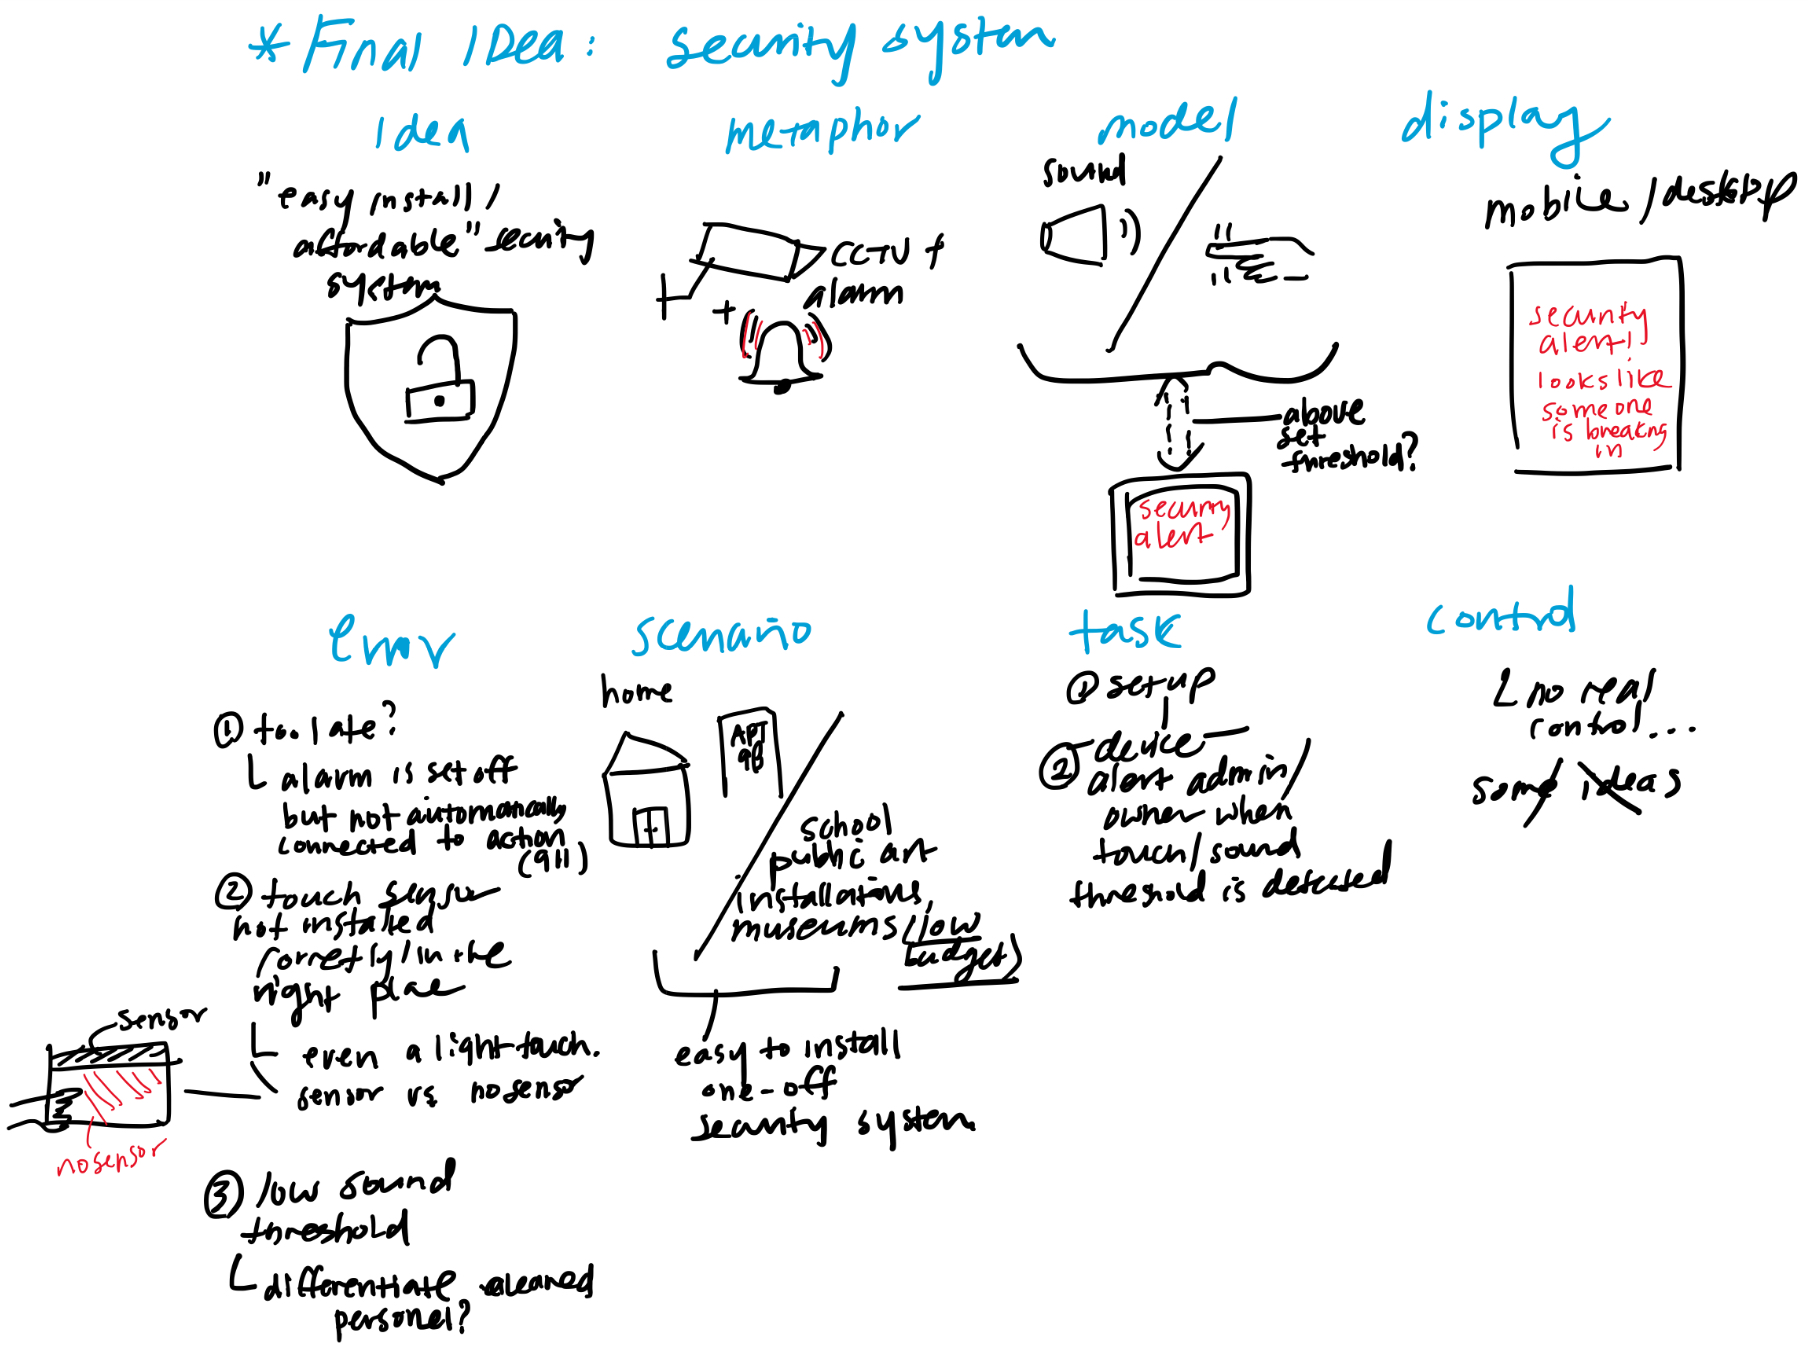 *Final IDea: security system
Idea
"easy install/
affordable" security
system
metaphor
CCTV +
alarm
+
model
sound
above
set
threshold?
security
alert
display
mobile/desktop
security
alert!
looks like
someone
is breaking
in
error
① too late?
alarm is set off
but not automatically
connected to action
(911)
② touch sensor
not installed
correctly/in the
right place
even a light touch.
sensor vs no sensor
sensor
no sensor
③ low sound
threshold
differentiate cleared
personel?
scenario
home
APT
9B
school
public art
installations,
museums (low
budget)
easy to install
one-off
security system
task
① setup
device
② alert admin/
owner when
touch/sound
threshold is detected
control
no real
control...
some ideas